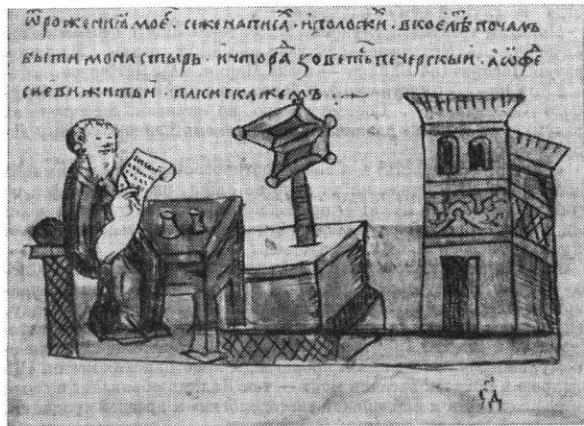 ѿроженїꙗ моеⷢ · сиженаписаⷯ · иположиⷯ · вкоелⷮѣ почалъ
быти монастырь · ичтораⷣ зоветⷭь печерскыи · аѡфеⷣ
сиевижитьи · пакискажемъ ·